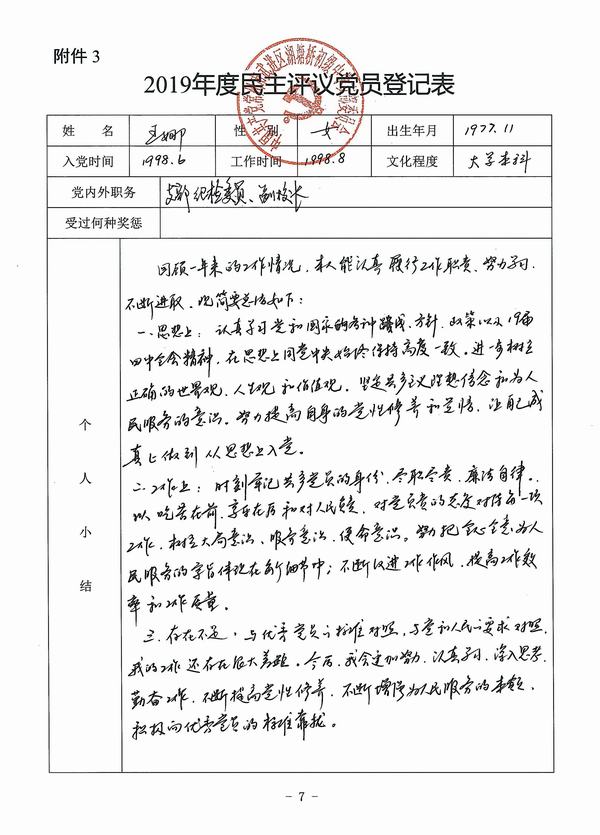 附件 3
2019年度民主评议党员登记表
姓 名 王娜 性 别 女 出生年月 1977.11
入党时间 1998.6 工作时间 1998.8 文化程度 大学本科
党内外职务 支部纪检委员、副校长
受过何种奖惩
个人小结
回顾一年来的工作情况,本人能认真履行工作职责,努力学习,
不断进取,现简要总结如下:
一、思想上:认真学习党和国家的各种路线、方针、政策以及19届
四中全会精神,在思想上同党中央始终保持高度一致。进一步树立
正确的世界观、人生观和价值观。坚定共产主义理想信念和为人
民服务的意识。努力提高自身的党性修养和党悟,让自己成
真正做到从思想上入党。
二、工作上:时刻牢记共产党员的身份,尽职尽责,廉洁自律。
以吃苦在前,享乐在后和对人民负责,对党负责的态度对待每一项
工作,树立大局意识、服务意识、使命意识。努力把全心全意为人
民服务的宗旨体现在每个细节中;不断改进工作作风,提高工作效
率和工作质量。
三、存在不足:与优秀党员的标准对照,与党和人民的要求对照,
我的工作还存在很大差距。今后,我会更加努力,认真学习,深入思考,
勤奋工作,不断提高党性修养,不断增强为人民服务的本领,
积极向优秀党员的标准靠拢。
- 7 -